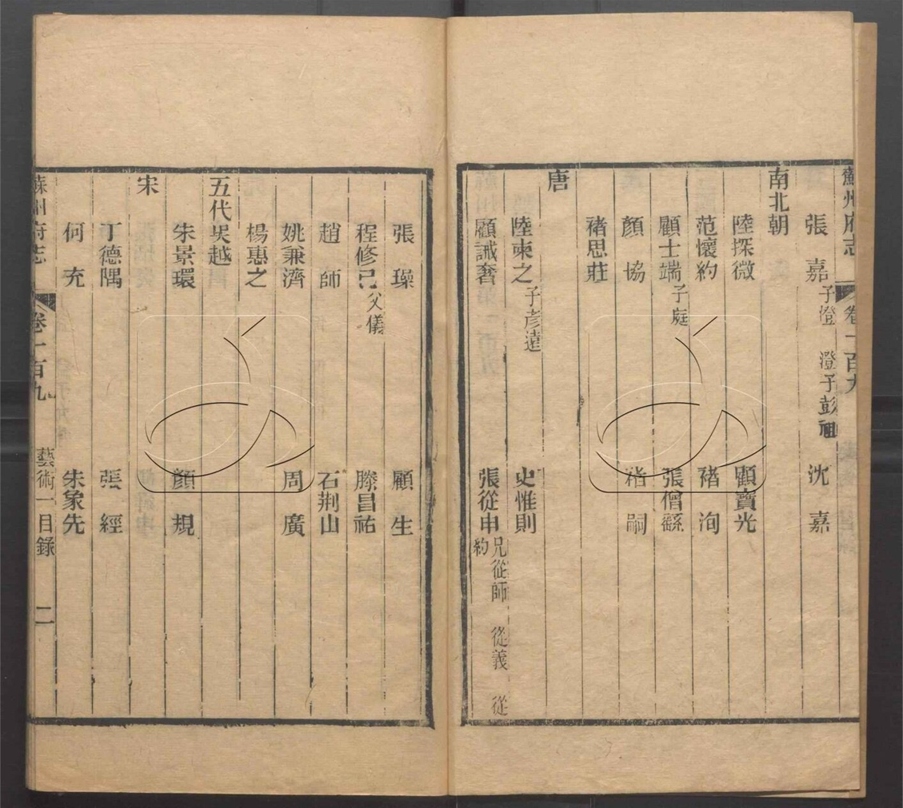 蘇州府志 卷一百九
張嘉 子澄 澄子彭祖 沈嘉
南北朝
陸探微 顧寶光
范懷約 褚洵
顧士端 子庭 張僧繇
顏協 褚嗣
褚思莊
唐
陸柬之 子彥遠 史惟則
顧誡奢 張從申 兄從師 從義 從約
張璪 顧生
程修己 父儀 滕昌祐
趙師 石荆山
姚兼濟 周廣
楊惠之
五代吳越
朱景環 顏規
宋
丁德隅 張經
何充 朱象先
蘇州府志 卷一百九 藝術一目錄 二